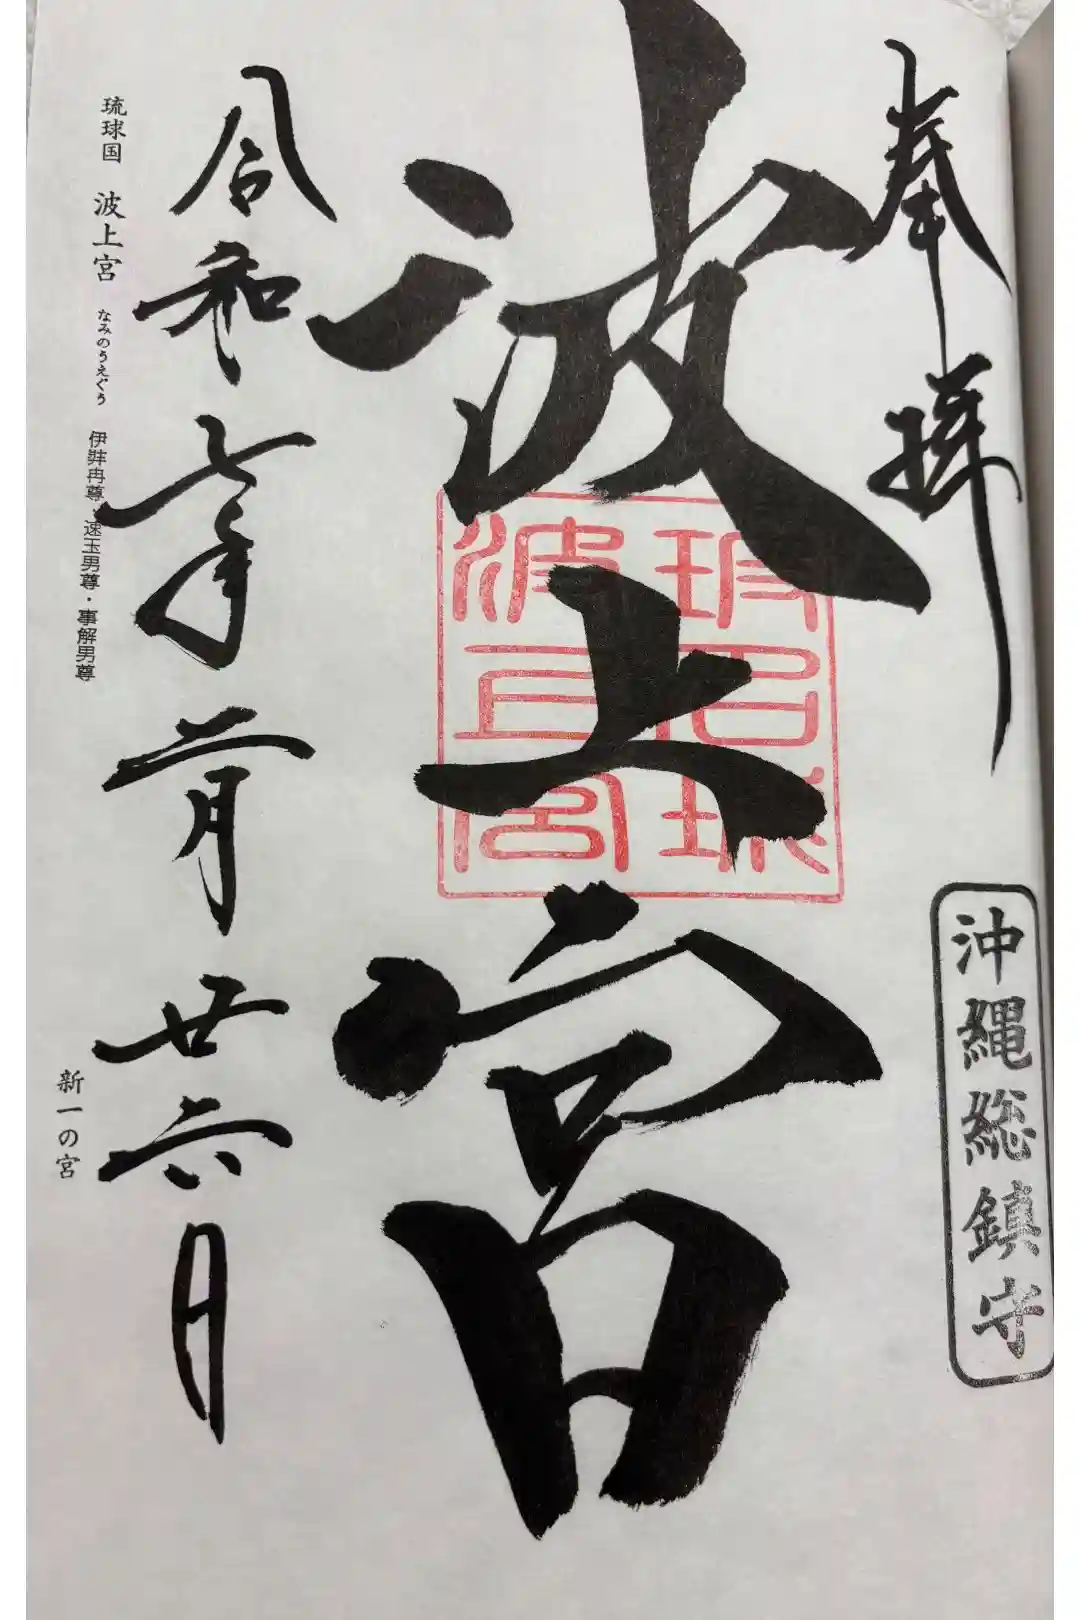 奉拝
沖縄総鎮守
波上宮
琉球国
波上宮
令和七年二月廿六日
琉球国 波上宮 なみのうえぐう 伊弉冉尊・速玉男尊・事解男尊
新一の宮